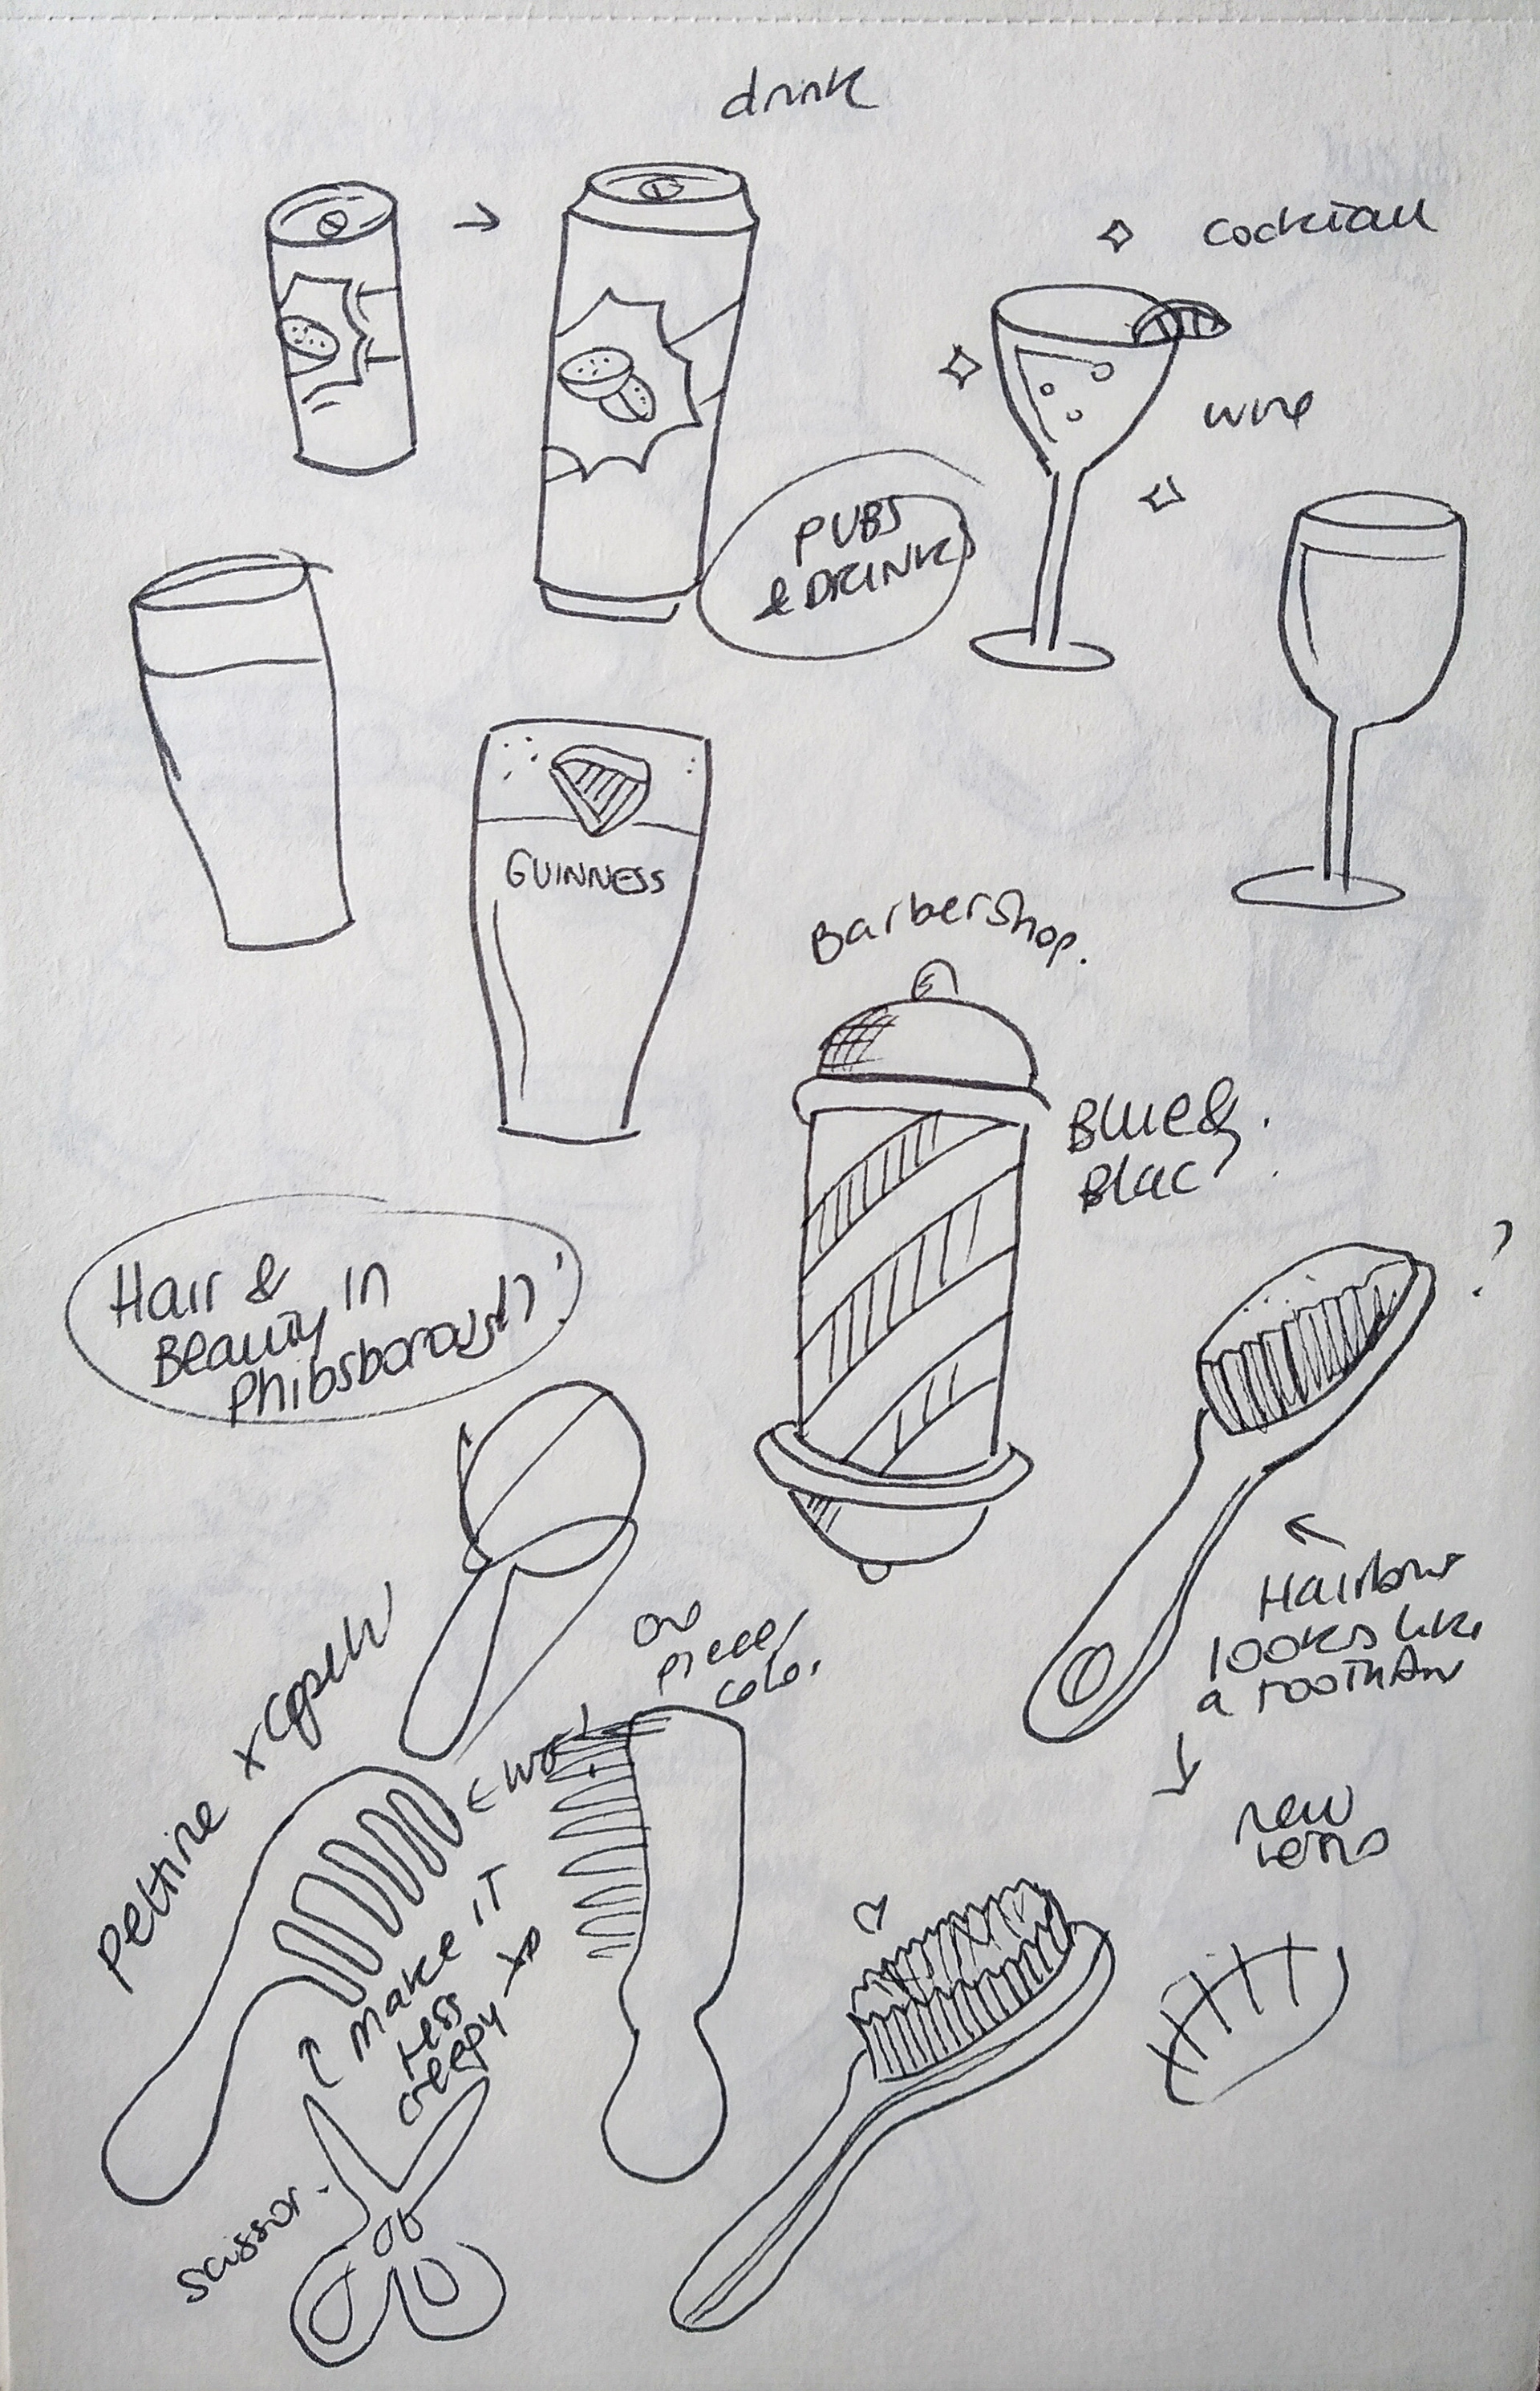 drink
cocktail
wine
PUBS
& DRINKS
GUINNESS
Barbershop.
Blue &
Blac
Hair &
Beauty in
Phibsborough
?
looks like
a
new
pettine x capelli
piece
Make it
less
creepy xD
scissor.